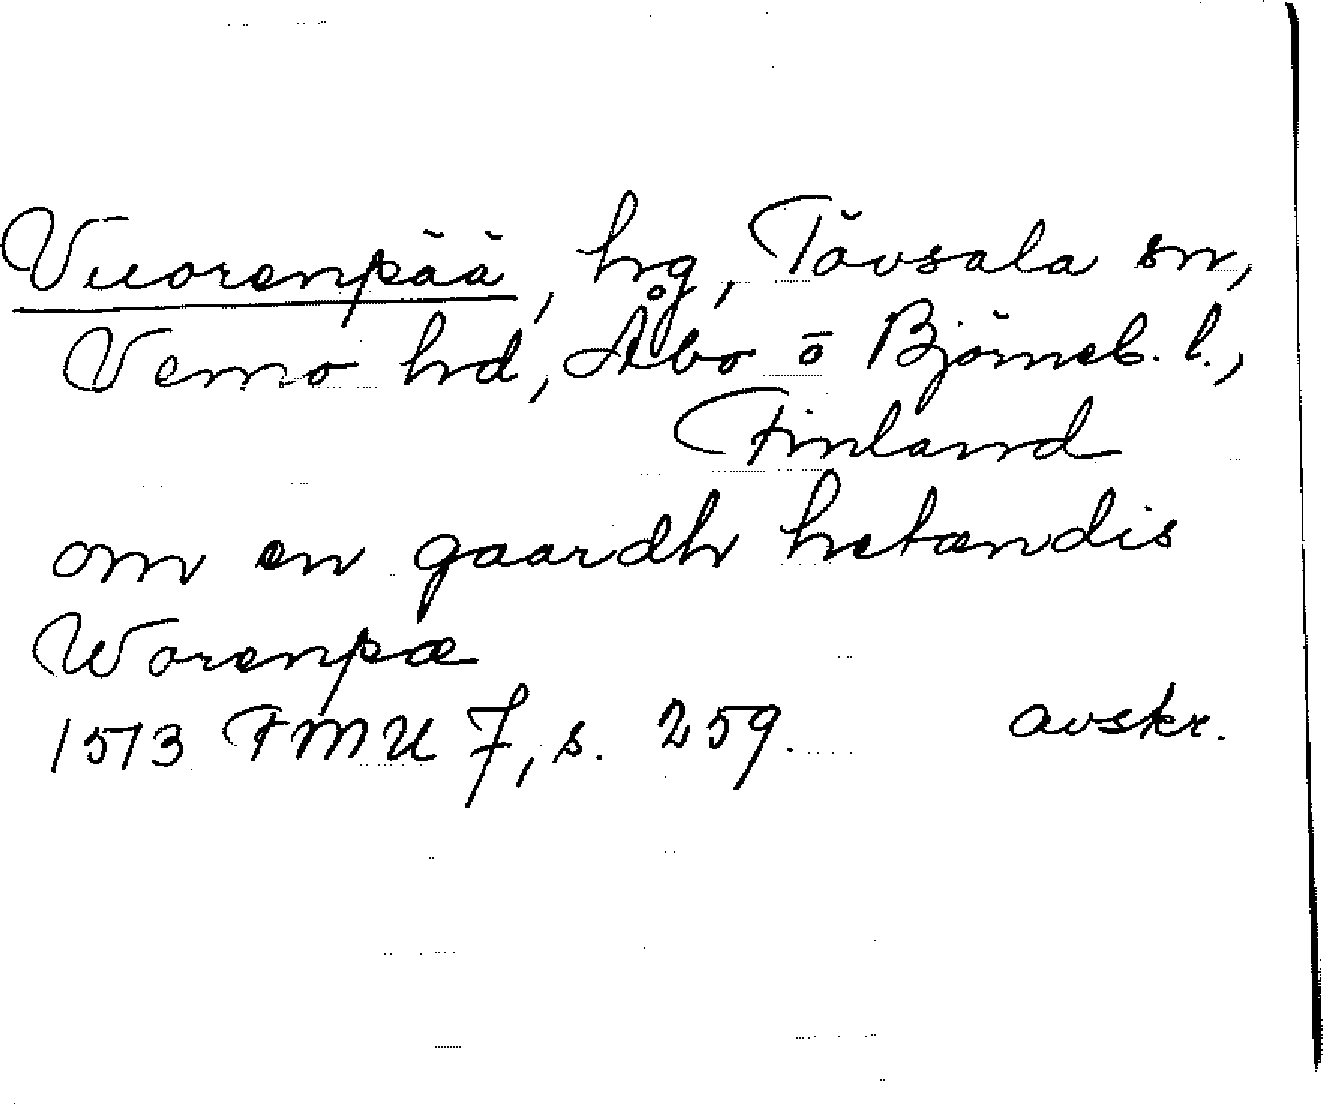 Vuorenpää, hg, Tövsala sn,
Vemo hd, Åbo o Björneb. l.,
Finland
om en gaardh hetændis
Worenpæ
1513 FMU 7, s. 259. avskr.